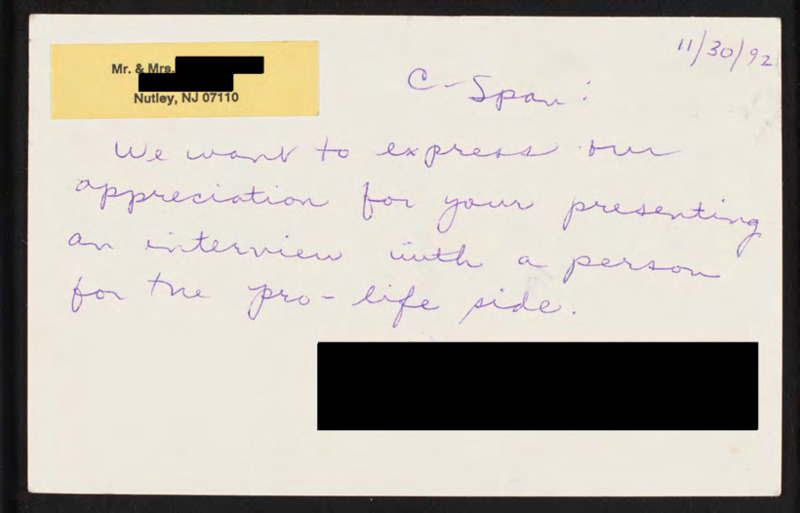 Mr. & Mrs.
Nutley, NJ 07110
11/30/92
C-Span:
We want to express our
appreciation for your presenting
an interview with a person
for the pro-life side.